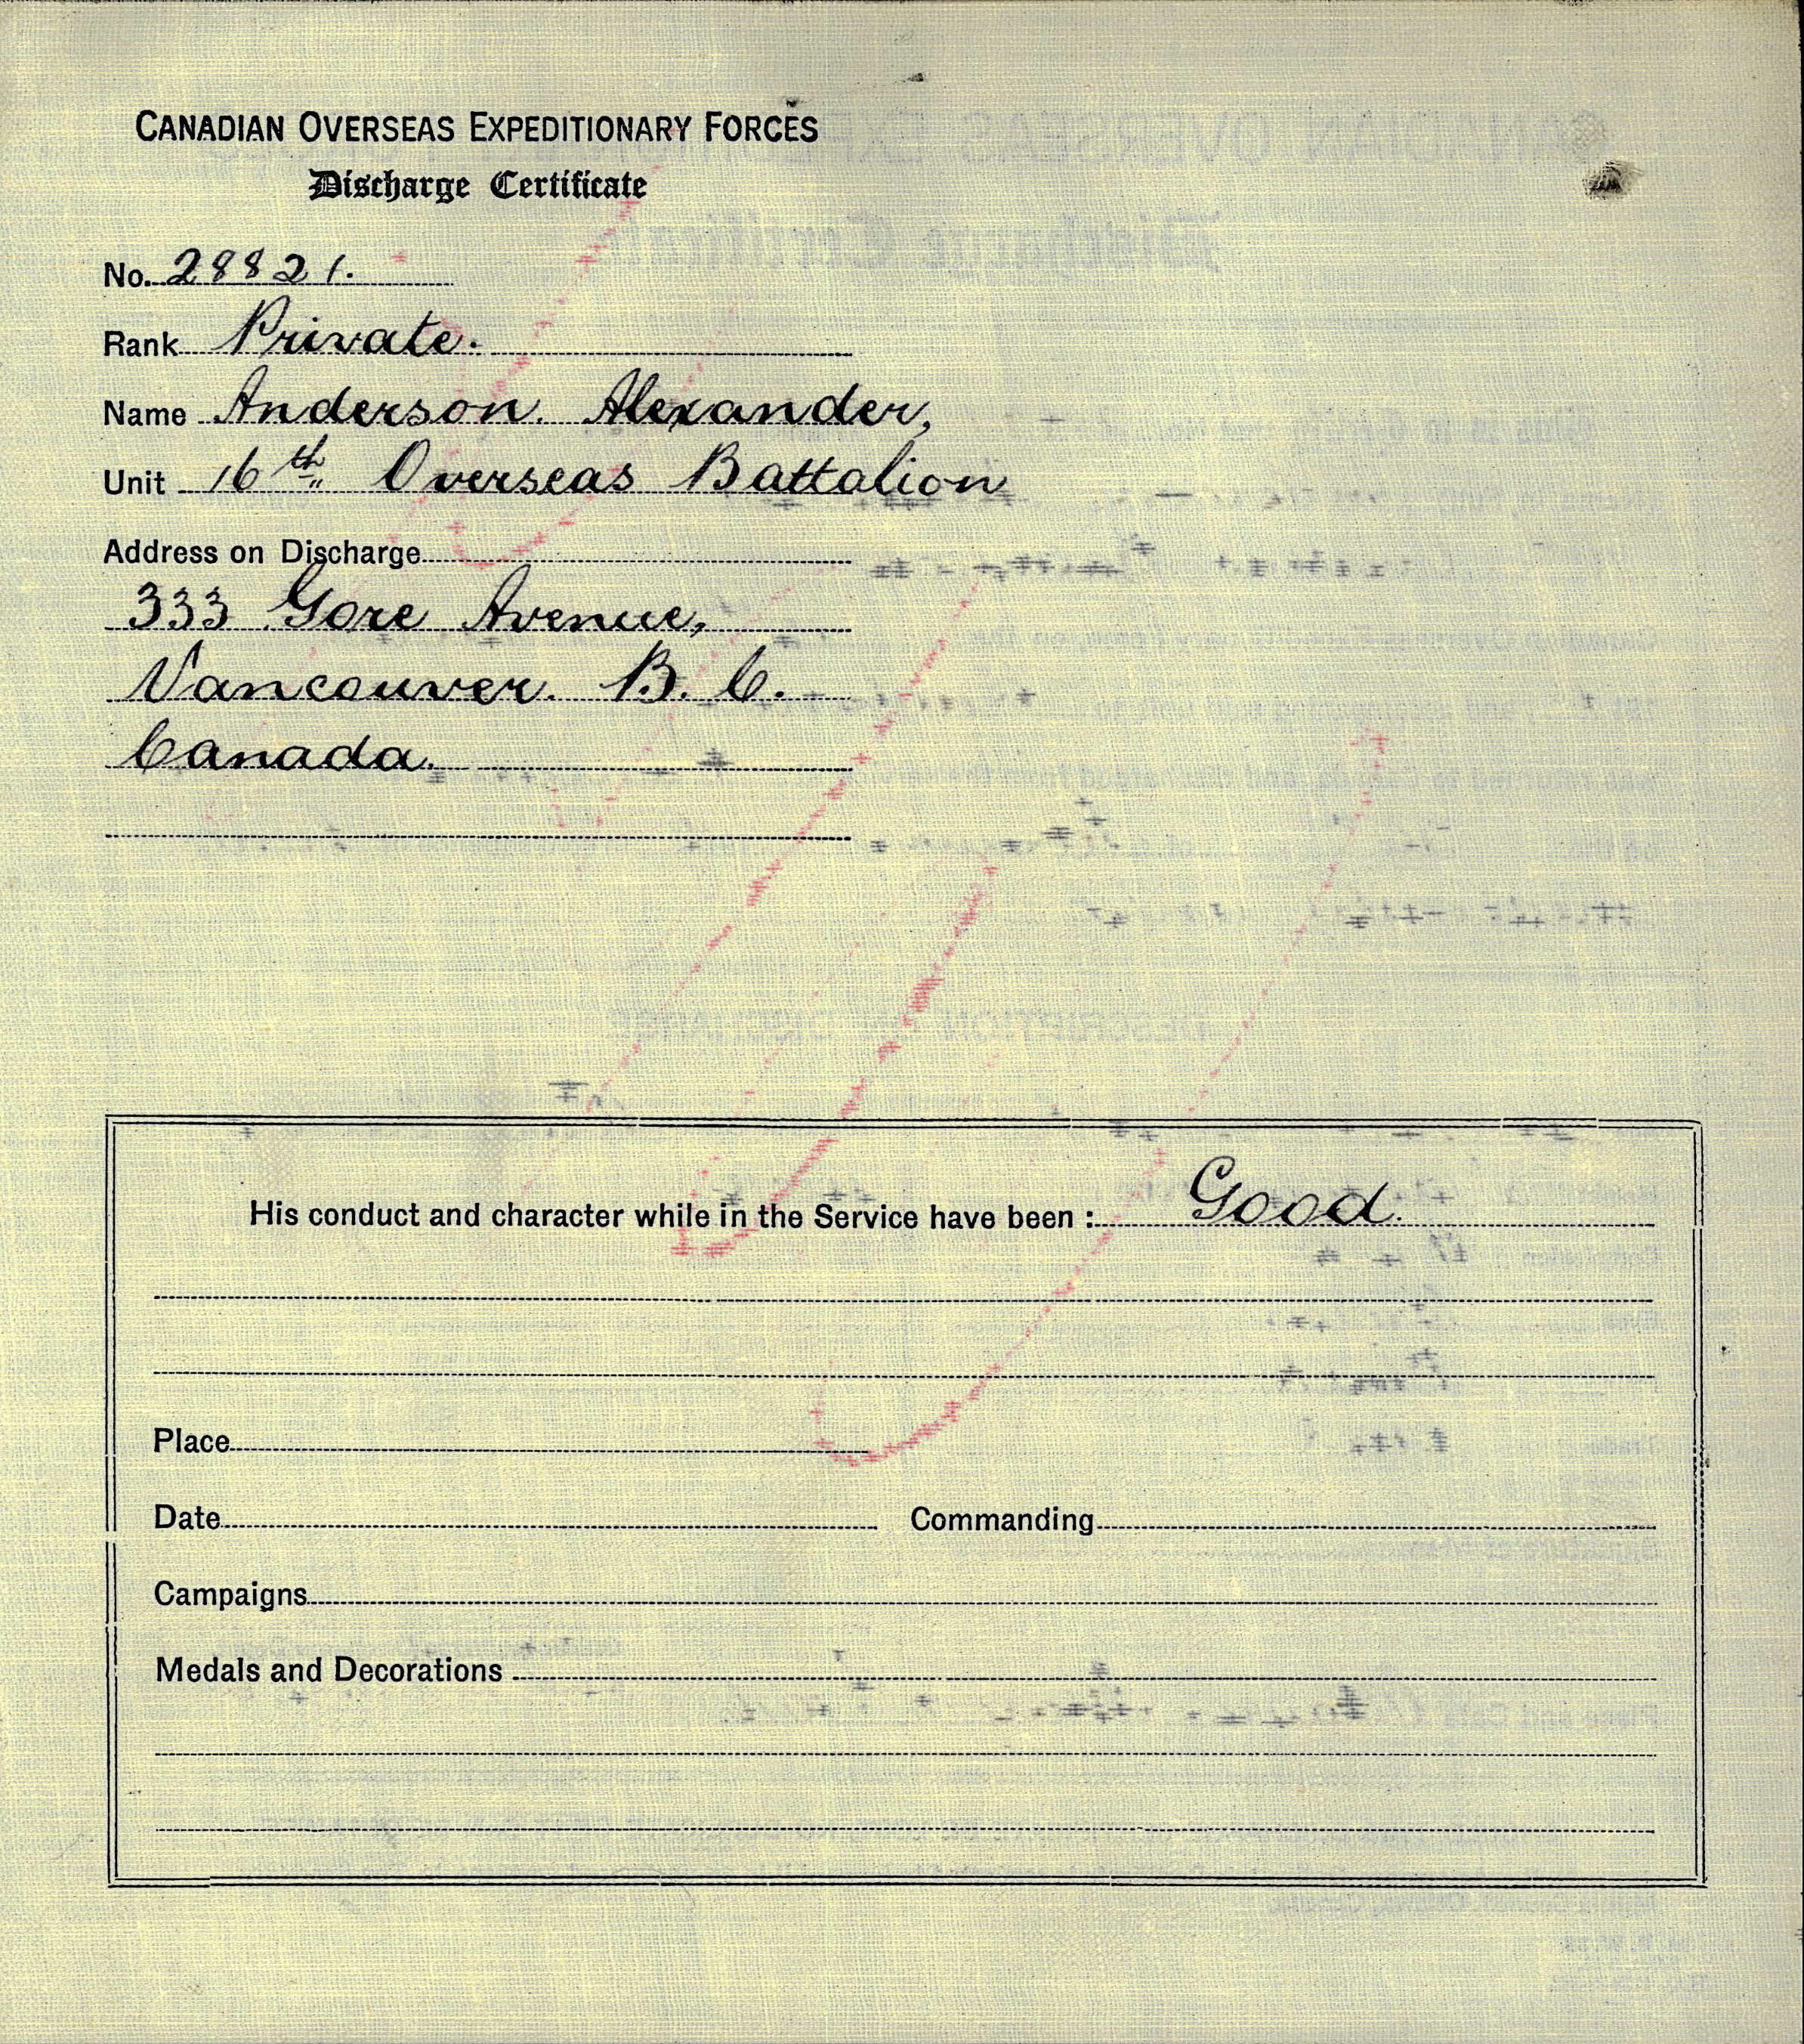 CANADIAN OVERSEAS EXPEDITIONARY FORCES
Discharge Certificate
No. 28821.
Rank Private.
Name Anderson. Alexander,
Unit 16th Overseas Battalion
Address on Discharge
333 Gore Avenue,
Vancouver. B. C.
Canada.
His conduct and character while in the Service have been : Good.
Place
Date Commanding
Campaigns
Medals and Decorations